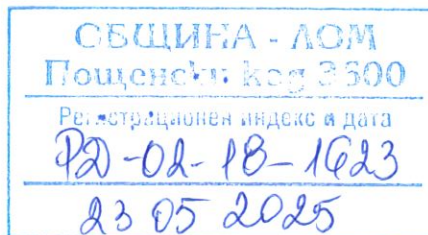 ОБЩИНА - ЛОМ
Пощенски код 3600
Регистрационен индекс и дата
РД-02-18-1623
23 05 2025